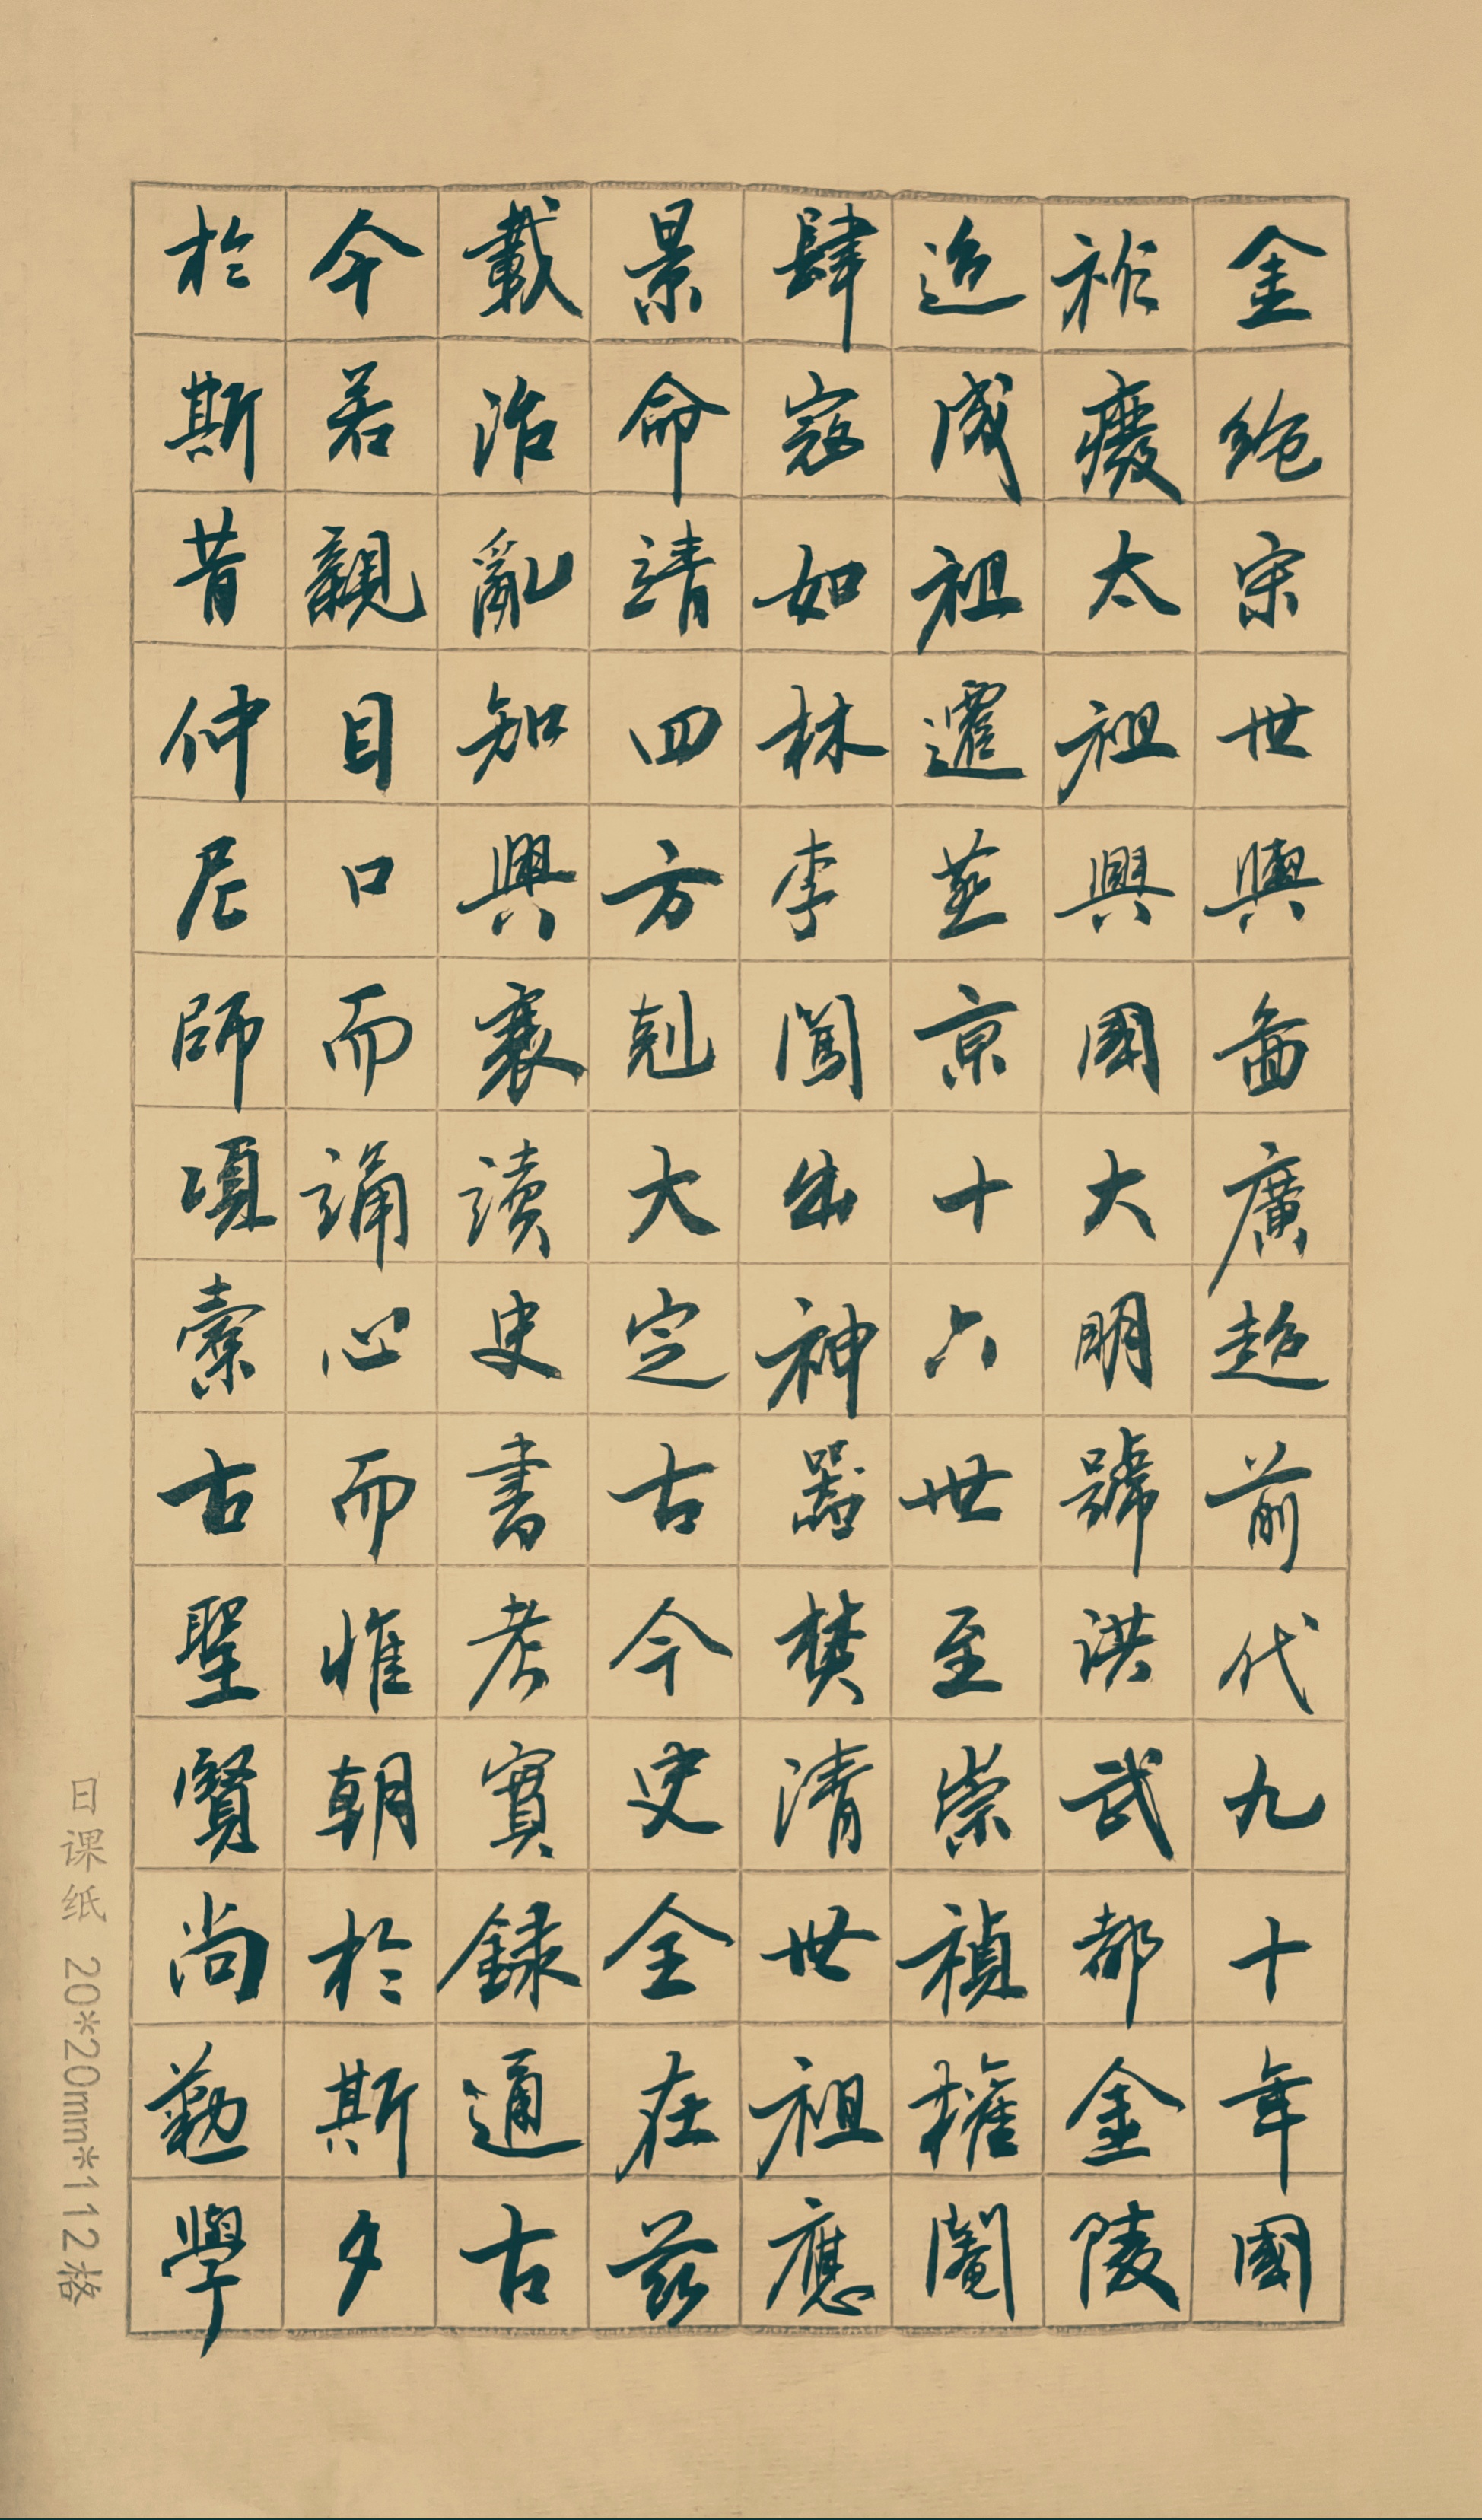 金絶宋世輿啚廣超前代九十年國
祚廢太祖興國大明號洪武都金陵
迨成祖遷燕京十六世至崇禎權閹
肆寇如林李闖出神器焚清世祖應
景命靖四方剋大定古今史全在兹
載治亂知興衰讀史書考實録通古
今若親目口而誦心而惟朝於斯夕
於斯昔仲尼師項橐古聖賢尚勤學
日课纸 20*20mm*112格